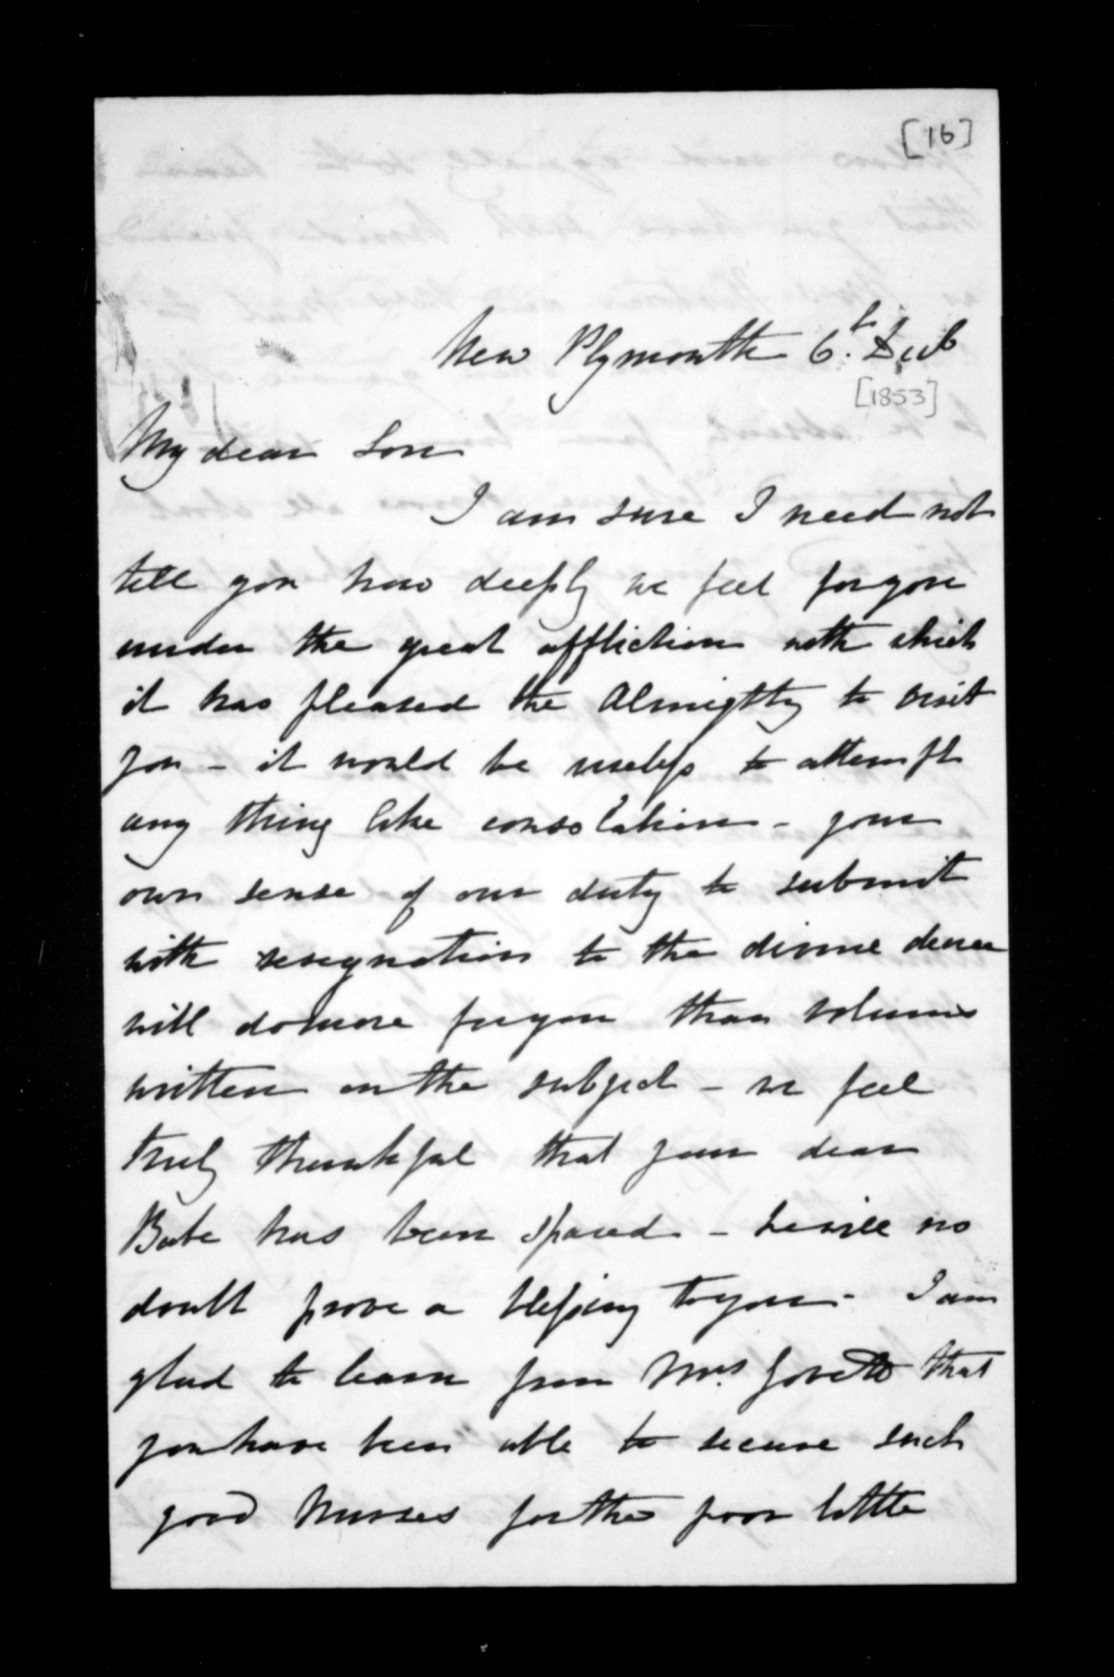 [16]
New Plymouth 6th. Feb
[1853]
My dear Son
I am sure I need not
tell you how deeply we feel for you
under the great affliction with which
it has pleased the Almighty to visit
you - it would be useless to attempt
any thing like consolation - your
own sense of our duty to submit
with resignation to the divine decree
will do more for you than volumes
written on the subject - we feel
truly thankful that your dear
Babe has been spared - he will no
doubt prove a blessing to you - I am
glad to learn from Mrs. that
you have been able to secure such
good Nurses for the poor little